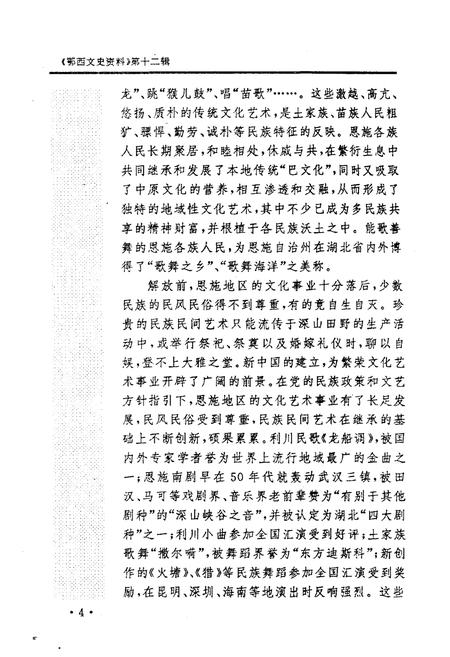 《鄂西文史资料》第十二辑
龙”、跳“猴儿鼓”、唱“苗歌”……。这些激越、高亢、
悠扬、质朴的传统文化艺术，是土家族、苗族人民粗
犷、骠悍、勤劳、诚朴等民族特征的反映。恩施各族
人民长期聚居，和睦相处，休戚与共，在繁衍生息中
共同继承和发展了本地传统“巴文化”，同时又吸取
了中原文化的营养，相互渗透和交融，从而形成了
独特的地域性文化艺术，其中不少已成为多民族共
享的精神财富，并根植于各民族沃土之中。能歌善
舞的恩施各族人民，为恩施自治州在湖北省内外博
得了“歌舞之乡”、“歌舞海洋”之美称。
解放前，恩施地区的文化事业十分落后，少数
民族的民风民俗得不到尊重，有的竟自生自灭。珍
贵的民族民间艺术只能流传于深山田野的生产活
动中，或举行祭祀、祭奠以及婚嫁礼仪时，聊以自
娱，登不上大雅之堂。新中国的建立，为繁荣文化艺
术事业开辟了广阔的前景。在党的民族政策和文艺
方针指引下，恩施地区的文化艺术事业有了长足发
展，民风民俗受到尊重，民族民间艺术在继承的基
础上不断创新，硕果累累。利川民歌《龙船调》，被国
内外专家学者誉为世界上流行地域最广的金曲之
一；恩施南剧早在50年代就轰动武汉三镇，被田
汉、马可等戏剧界、音乐界老前辈赞为“有别于其他
剧种”的“深山峡谷之音”，并被认定为湖北“四大剧
种”之一；利川小曲参加全国汇演受到好评；土家族
歌舞“撒尔嗬”，被舞蹈界誉为“东方迪斯科”；新创
作的《火塘》、《猎》等民族舞蹈参加全国汇演受到奖
励，在昆明、深圳、海南等地演出时反响强烈。这些
·4·